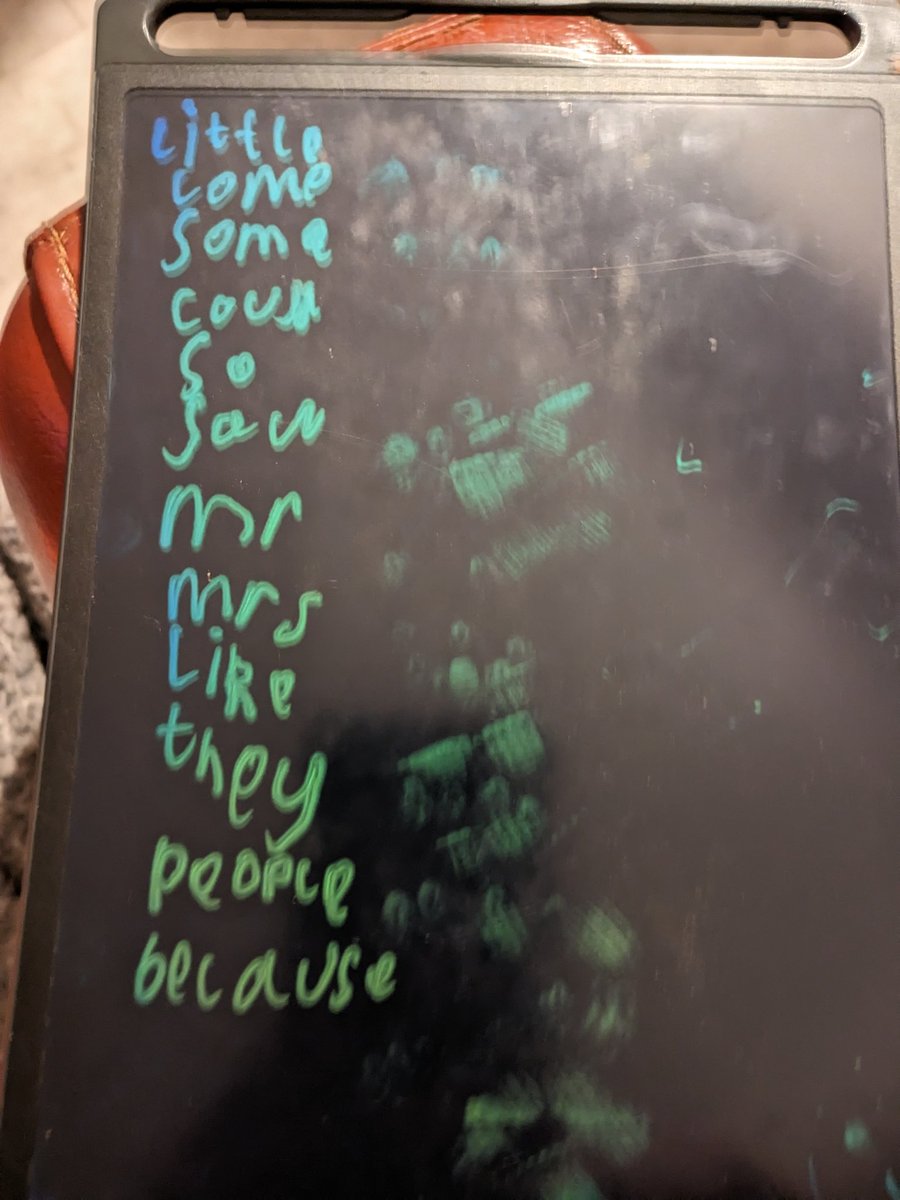 Little
come
some
so
saw
mr
mrs
Like
they
people
because